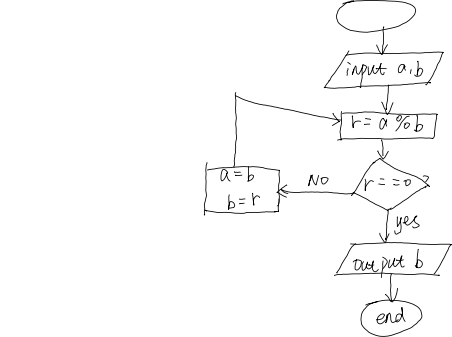 input a,b
r=a%b
r==0?
No
a=b
b=r
yes
output b
end